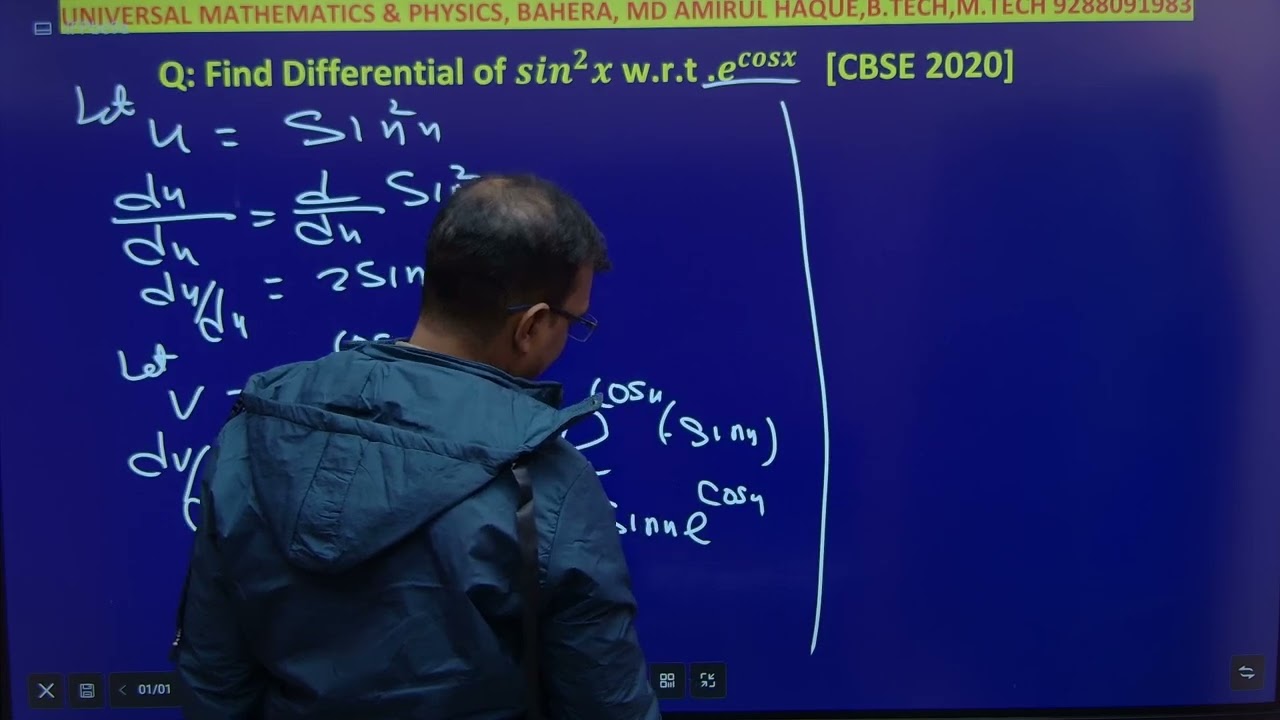 UNIVERSAL MATHEMATICS & PHYSICS, BAHERA, MD AMIRUL HAQUE,B.TECH,M.TECH 9288091983
Q: Find Differential of sin²x w.r.t .e^cosx [CBSE 2020]
Let
u = Sin²x
du/dx = d/dx Sin²
du/dx = 2Sin
Let
V =
cosx (-sinx)
dv
sinx e^cosx
01/01